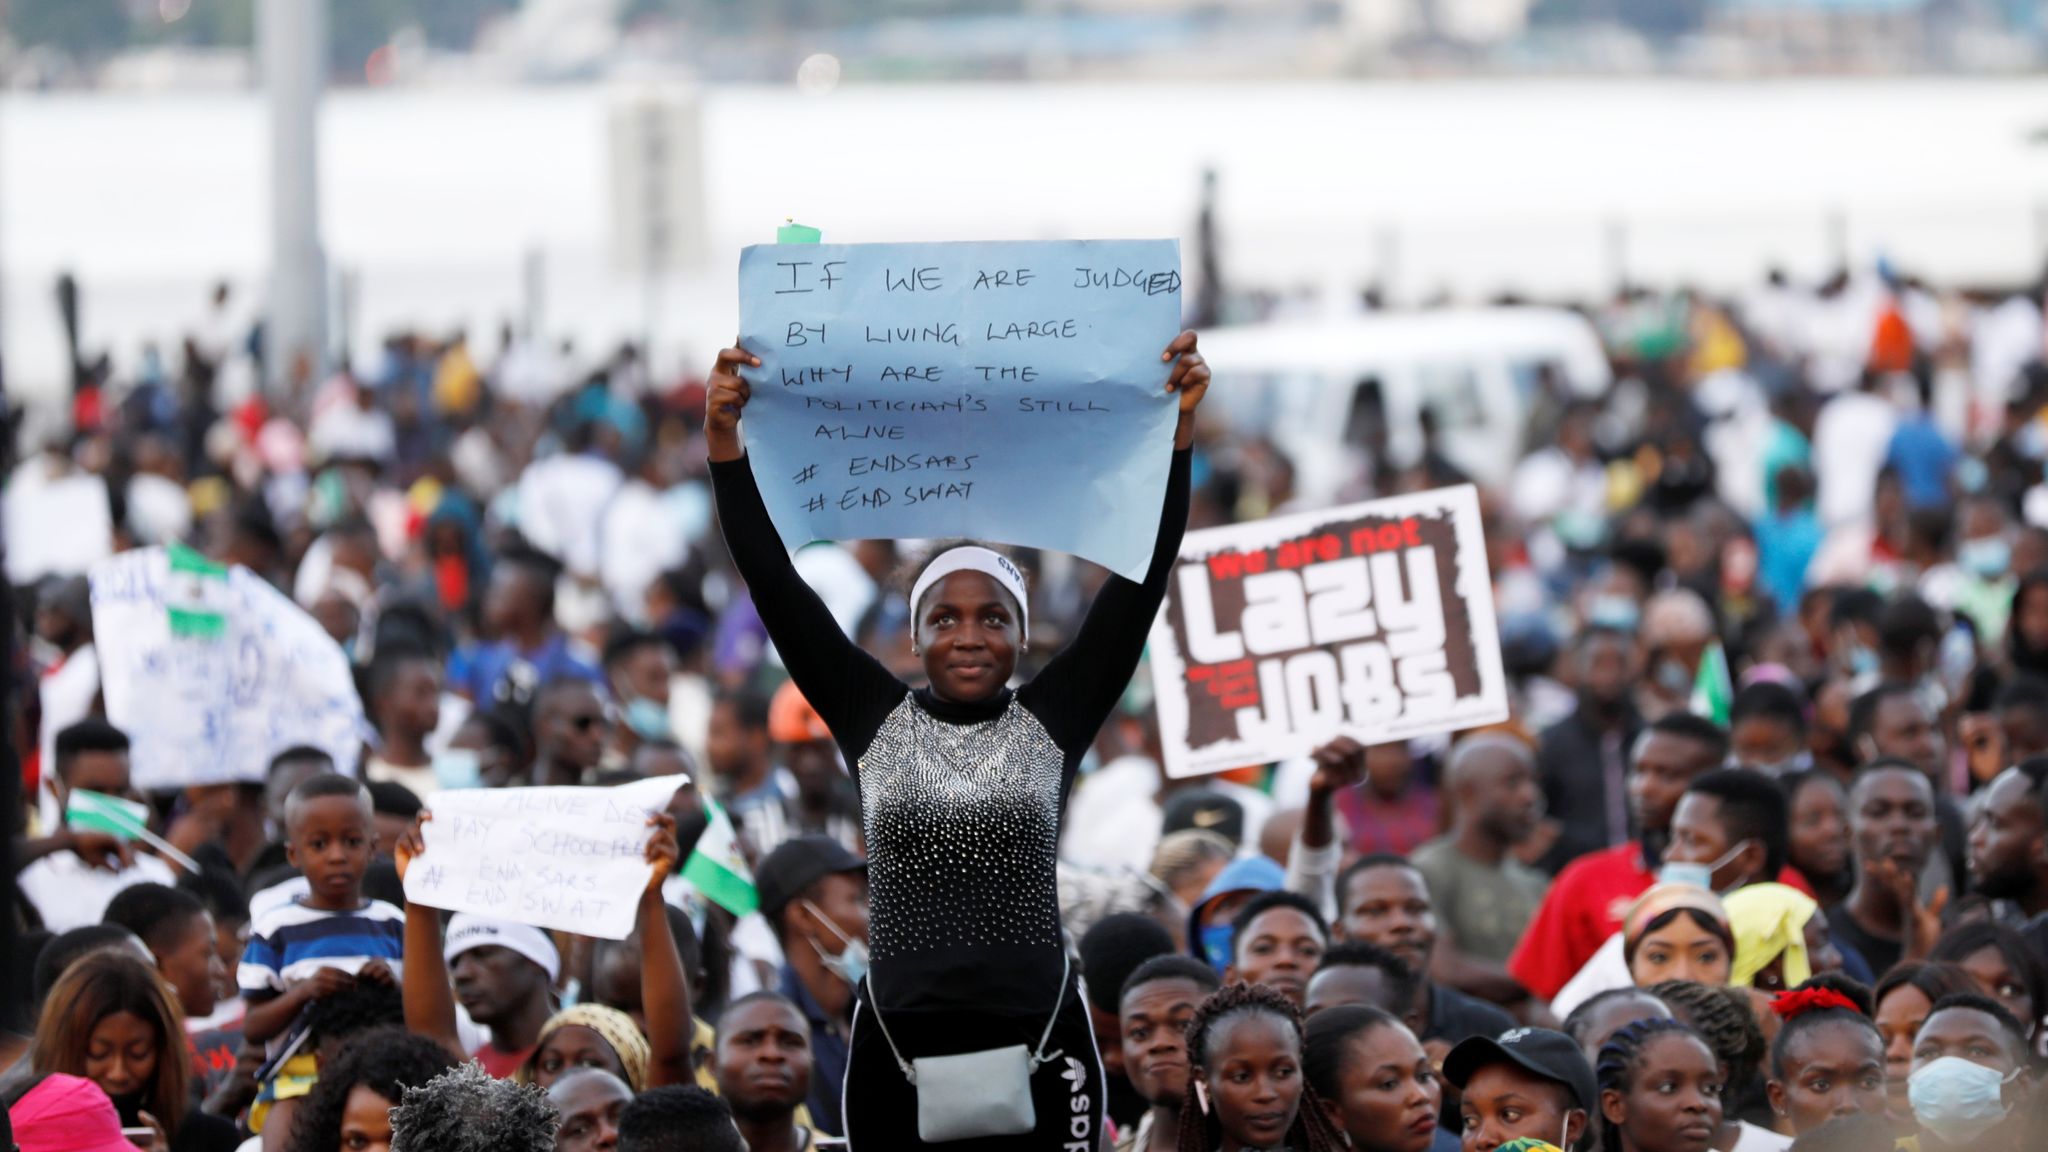 IF WE ARE JUDGED
BY LIVING LARGE.
WHY ARE THE
POLITICIAN'S STILL
ALIVE
# ENDSARS
# END SWAT
We are not
Lazy
JOBS
ALIVE
PAY SCHOOL FEE
# END SARS
END SWAT
adidas